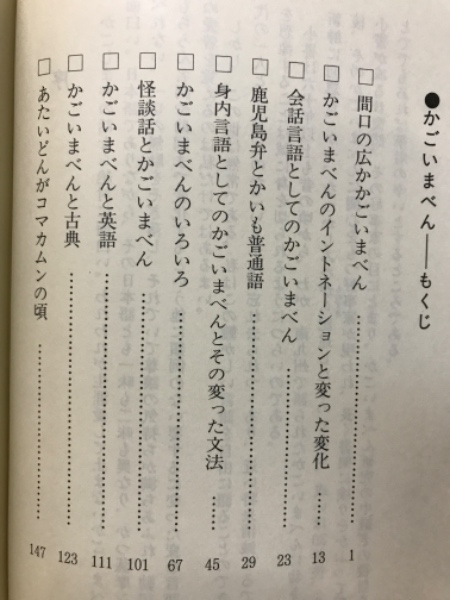 ●かごいまべん―もくじ
□間口の広かかごいまべん…………………1
□かごいまべんのイントネーションと変った変化……13
□会話言語としてのかごいまべん…………23
□鹿児島弁とかいも普通語…………………29
□身内言語としてのかごいまべんとその変った文法……45
□かごいまべんのいろいろ…………………67
□怪談話とかごいまべん……………………101
□かごいまべんと英語………………………111
□かごいまべんと古典………………………123
□あたいどんがコマカムンの頃……………147